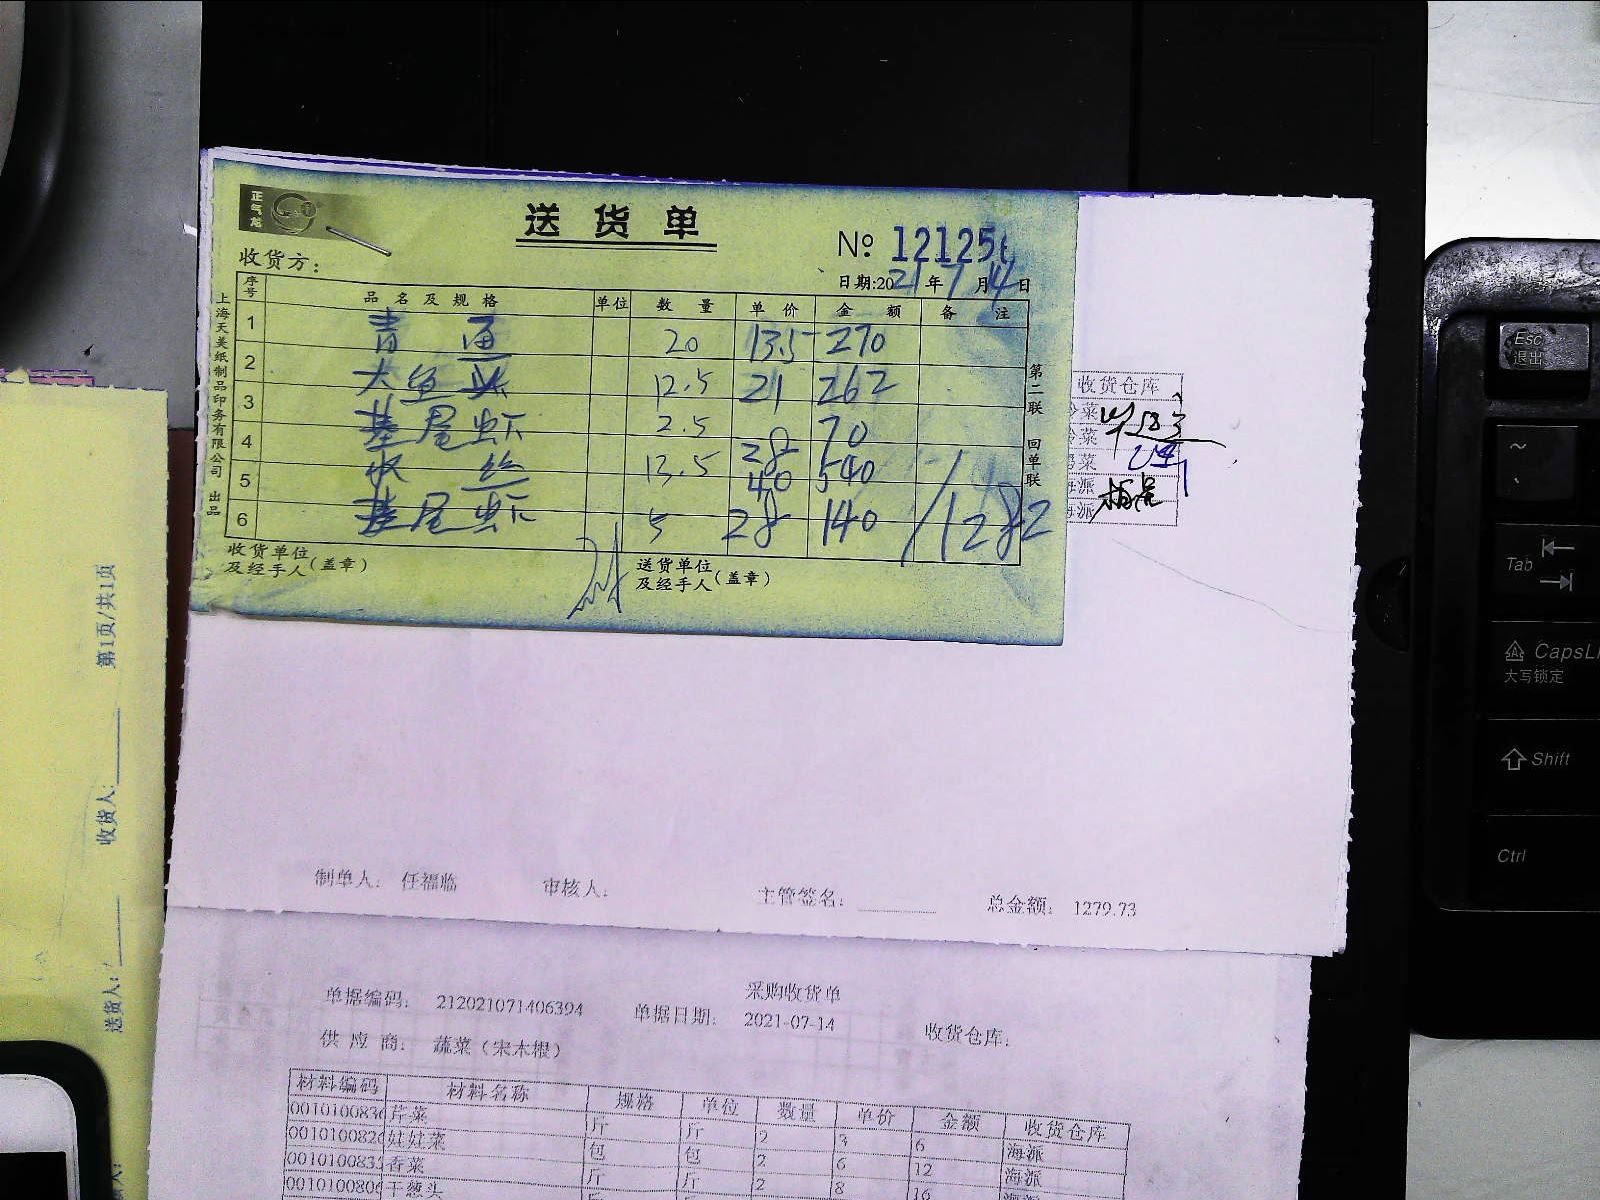 正气龙
送货单
№ 12125
收货方：
日期:2021年7月14日
序号 品名及规格 单位 数量 单价 金额 备注
1 青 20 13.5 270
2 大鱼头 12.5 21 262
3 基尾虾 2.5 28 70
4 丝 13.5 40 540
5 基尾虾 5 28 140 1282
6
收货单位及经手人(盖章)
送货单位及经手人(盖章)
上海天美纸制品印务有限公司 出品
第二联 回单联
收货仓库
冷菜
冷菜
海派
海派
制单人： 任福临 审核人： 主管签名： 总金额： 1279.73
采购收货单
单据编码： 212021071406394 单据日期： 2021-07-14 收货仓库：
供应商： 蔬菜（宋木根）
材料编码 材料名称 规格 单位 数量 单价 金额 收货仓库
0010100836 芹菜 斤 斤 2 3 6 海派
001010082 娃娃菜 包 包 2 6 12 海派
001010083 香菜 斤 斤 2 8 16
001010080 干葱头
第1页/共1页
收货人：
送货人：
Esc
退出
~
Tab
CapsL
大写锁定
Shift
Ctrl